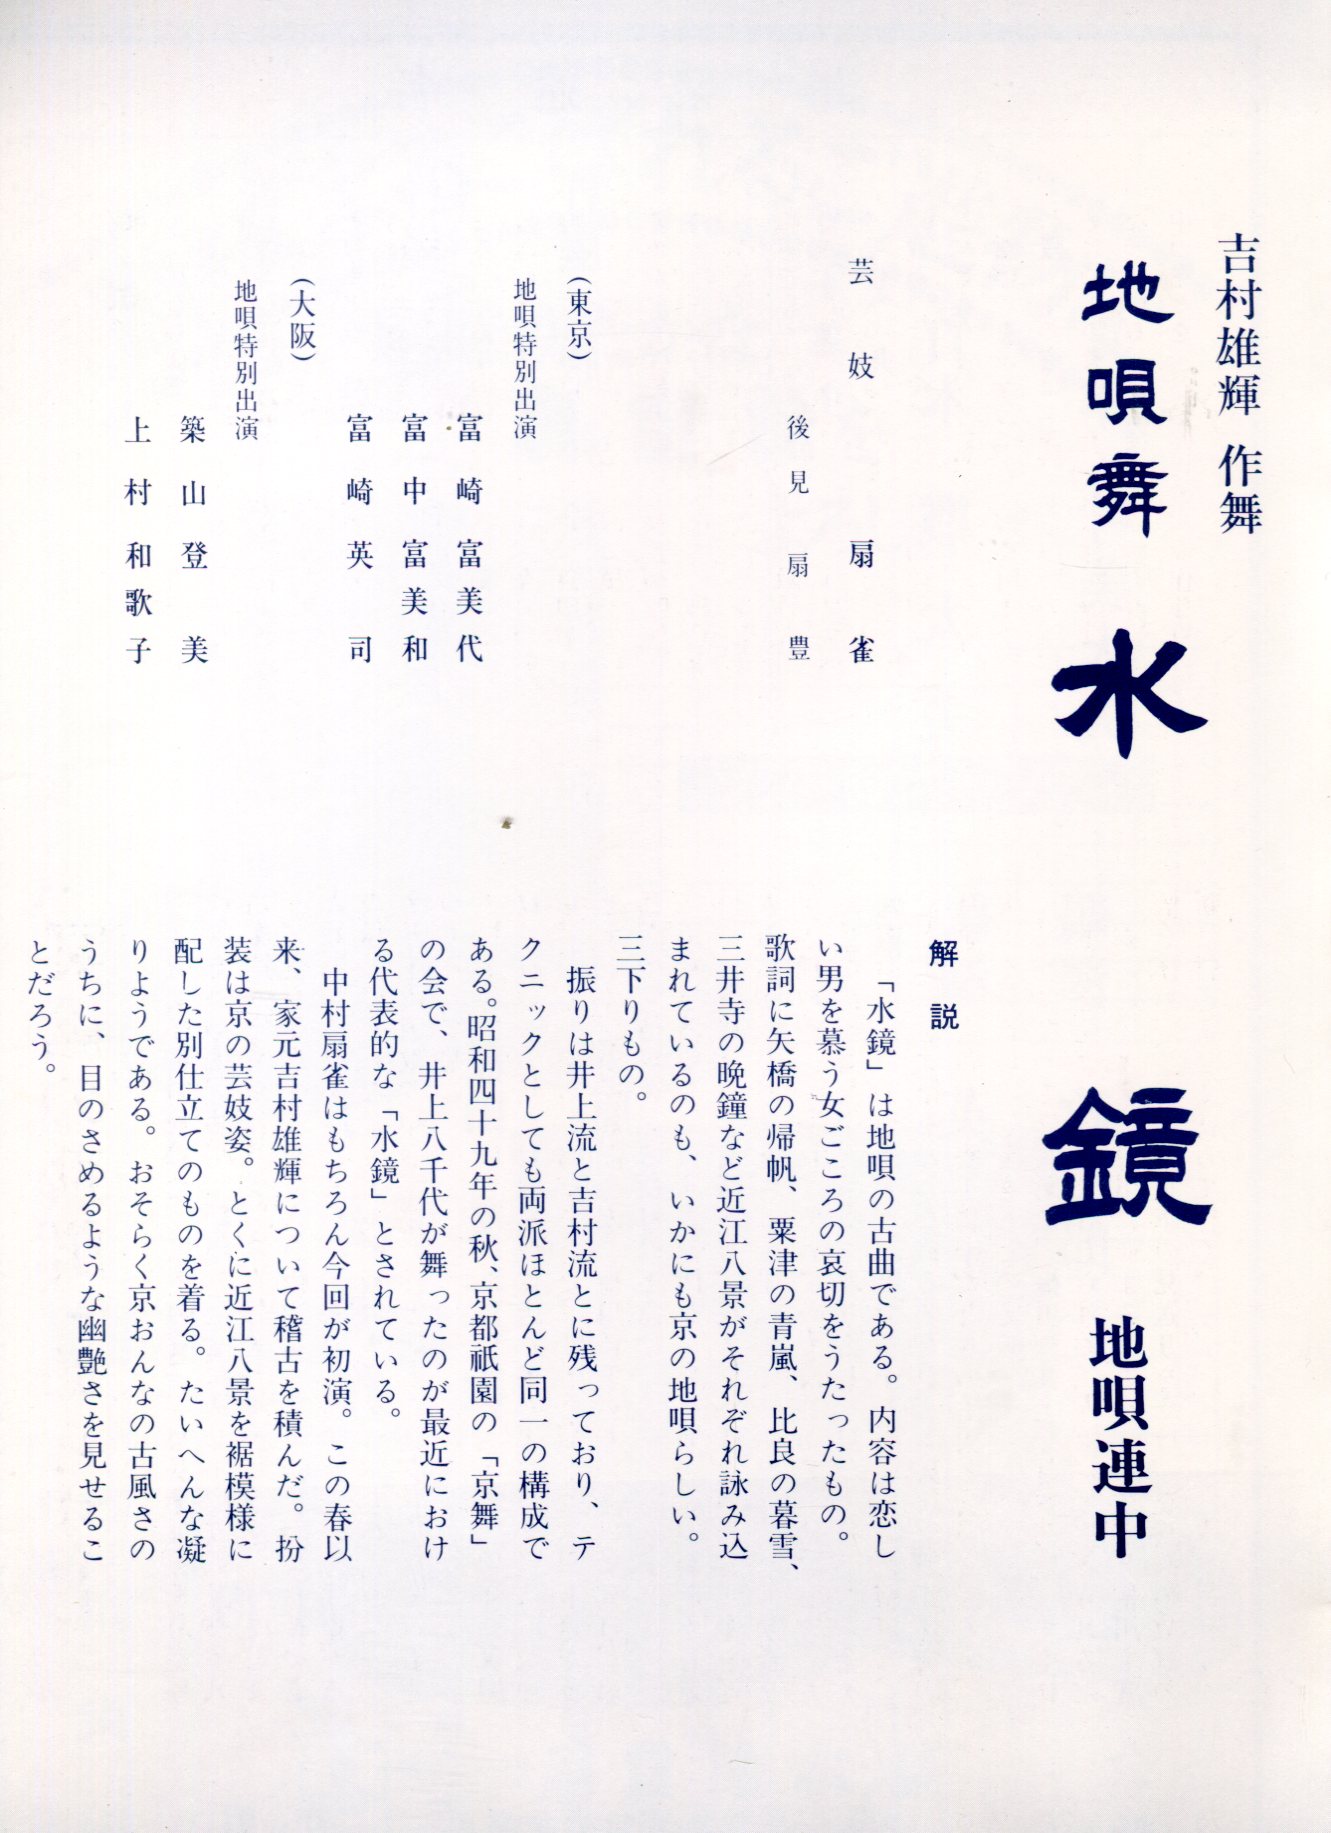 吉村雄輝 作舞
地唄舞 水鏡 地唄連中
芸妓 扇雀
後見 扇豊
(東京)
地唄特別出演
富崎富美代
富中富美和
富崎英司
(大阪)
地唄特別出演
築山登美
上村和歌子
解説
「水鏡」は地唄の古曲である。内容は恋し
い男を慕う女ごころの哀切をうたったもの。
歌詞に矢橋の帰帆、粟津の青嵐、比良の暮雪、
三井寺の晩鐘など近江八景がそれぞれ詠み込
まれているのも、いかにも京の地唄らしい。
三下りもの。
振りは井上流と吉村流とに残っており、テ
クニックとしても両派ほとんど同一の構成で
ある。昭和四十九年の秋、京都祇園の「京舞」
の会で、井上八千代が舞ったのが最近におけ
る代表的な「水鏡」とされている。
中村扇雀はもちろん今回が初演。この春以
来、家元吉村雄輝について稽古を積んだ。扮
装は京の芸妓姿。とくに近江八景を裾模様に
配した別仕立てのものを着る。たいへんな凝
りようである。おそらく京おんなの古風さの
うちに、目のさめるような幽艶さを見せるこ
とだろう。